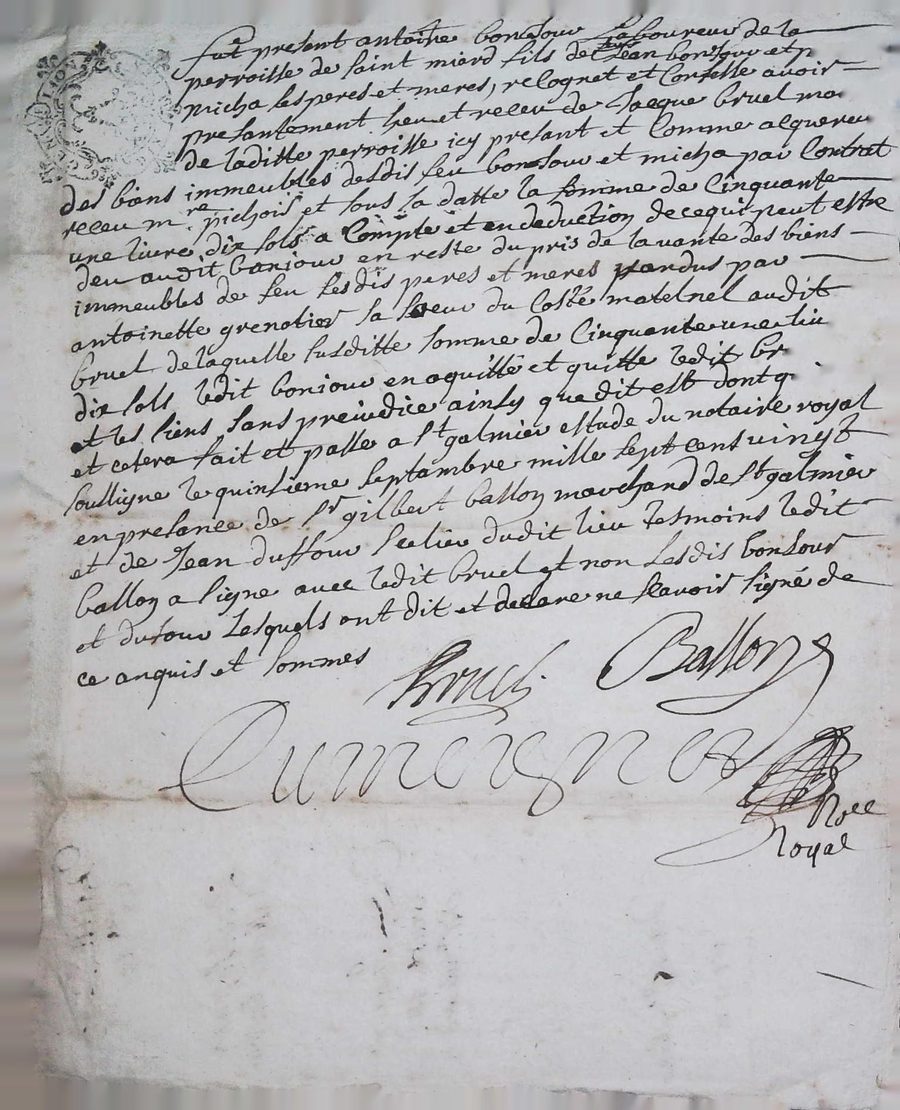 fut present antoine bonjour Laboureur de la
perroisse de saint mierd fils de feu Jean bonjour et p
micha les peres et meres, recognet et Confesse avoir
presantement heu et receu de Jacque bruel ma
de laditte perroisse icy presant et Comme acquereu
des biens immeubles desdis feu bonjour et micha par Contrat
receu mre pichois et sous sa datte la somme de Cinquante
une livre dix sols a Compte et en deduction de ce qui peut estre
deu audit bonjour en reste du pris de la vante des biens
immeubles de feu lesdis peres et meres vandus par
antoinette grenotier sa soeur du Costé matelnel audit
bruel de laquelle susditte somme de Cinquante une liv
dix sols ledit bonjour en aquitté et quitte ledit br
et les siens sans preiudice ainsy que dit est dont q
et cetera fait et passe a st galmier estude du notaire royal
soussigne le quinsieme septambre mille sept cens vingt
en presance de sr gilbert ballon marchand de st galmier
et de Jean duffour sellier dudit lieu tesmoins ledit
ballon a signe avec ledit bruel et non lesdis bonjour
et dufour lesquels ont dit et declare ne scavoir signé de
ce anquis et sommes
Bruel Ballon
Nore
Royal